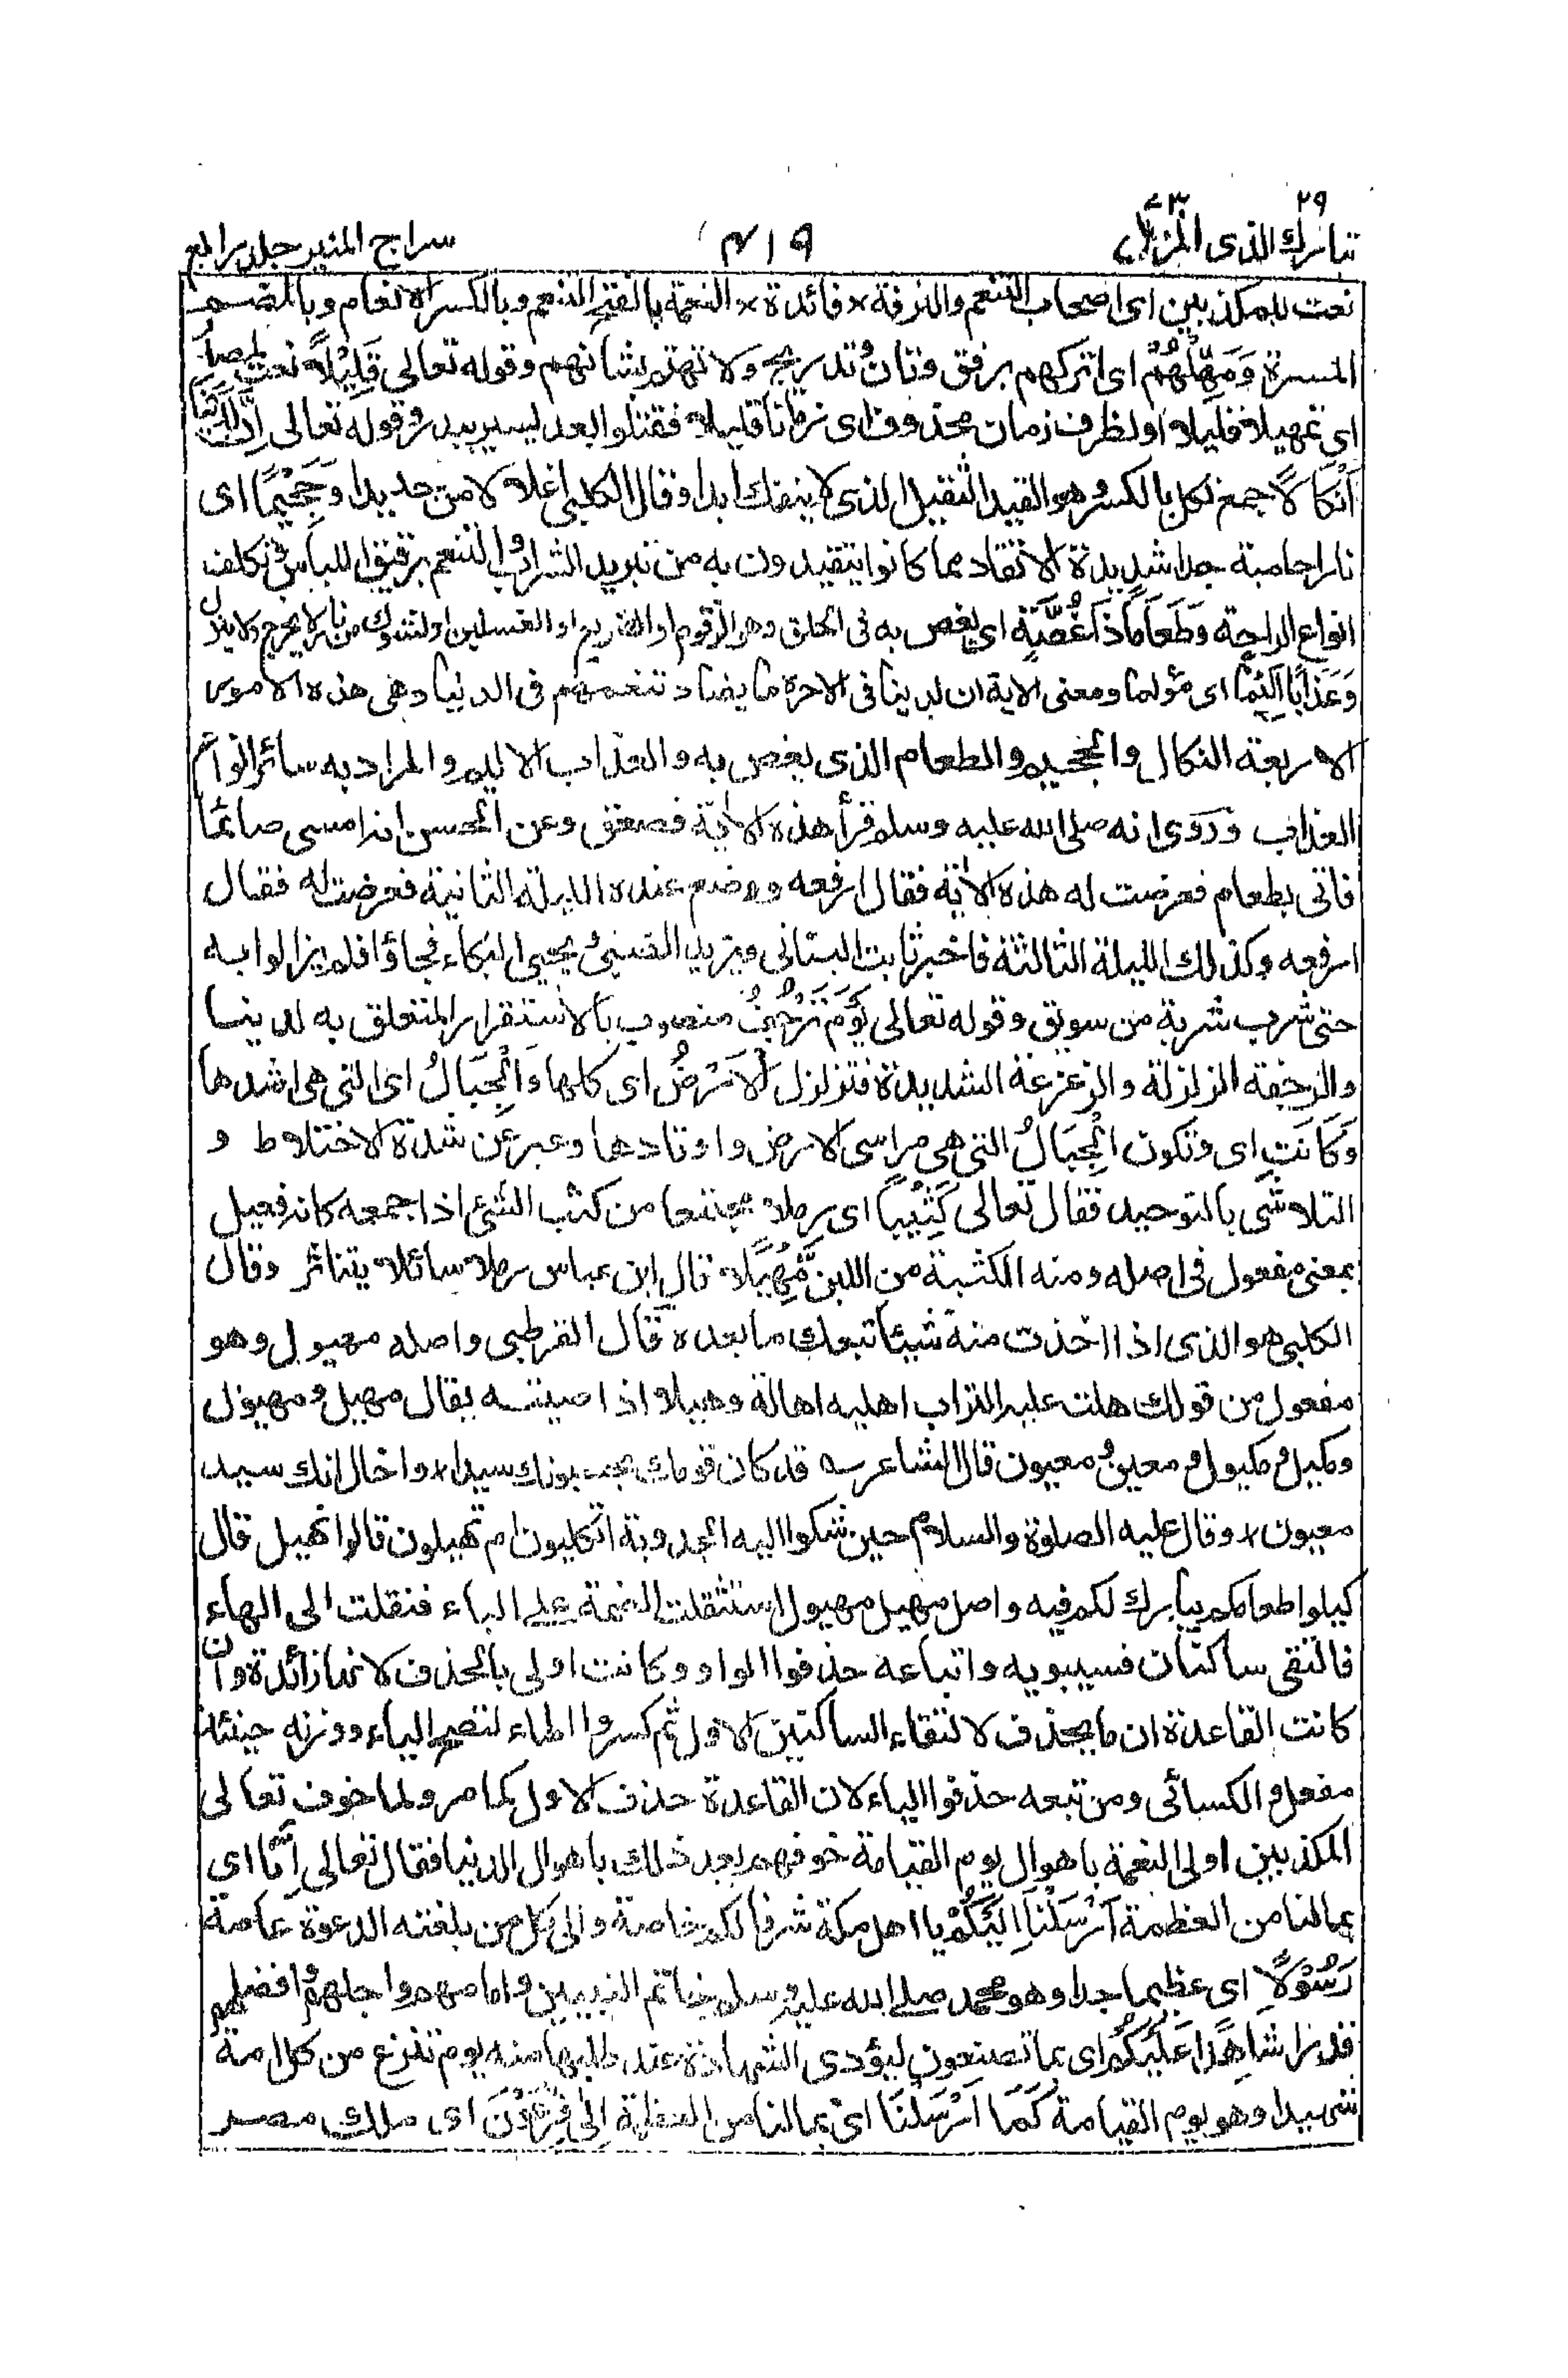 ٢٩ ٧٣
تبارك الذى المزمل ٤١٩ سراج المنير جلد رابع
نعت للمكذبين اى اصحاب التنعم والترفة * فائدة * النعمة بالفتح التنعم وبالكسر الانعام وبالضم
المسرة وَمَهِّلْهُمْ اى اتركهم برفق وتان وتدريج ولا تهتم بشانهم وقوله تعالى قَلِيْلًا نعت لمصدر
اى تمهيلا قليلا او لظرف زمان محذوف اى زمانا قليلا فقتلوا بعد يسير ببدر وقوله تعالى اِنَّ لَدَيْنَا
اَنْكَالًا جمع نكل بالكسر وهو القيد الثقيل الذى لا ينفك ابدا وقال الكلبى اغلالا من حديد وَجَحِيْمًا اى
نارا حامية جدا شديدة الاتقاد بما كانوا يتقيدون به من تبريد الشراب والتنعم برقيق اللباس وتكلف
انواع الراحة وَطَعَامًا ذَا غُصَّةٍ اى يغص به فى الحلق وهو الزقوم او الضريع او الغسلين او شوك من نار لا يخرج ولا ينزل
وَعَذَابًا اَلِيْمًا اى مؤلما ومعنى الاية ان لدينا فى الاخرة ما يضاد تنعمهم فى الدنيا وهى هذه الامور
الاربعة النكال والجحيم والطعام الذى يغص به والعذاب الاليم والمراد به سائر انواع
العذاب وروى انه صلى الله عليه وسلم قرأ هذه الاية فصعق وعن الحسن انه امسى صائما
فاتى بطعام فعرضت له هذه الاية فقال ارفعه ووضع عنده الليلة الثانية فعرضت له فقال
ارفعه وكذلك الليلة الثالثة فاخبر ثابت البنانى ويزيد الضبى ويحيى البكاء فجاؤا فلم يزالوا به
حتى شرب شربة من سويق وقوله تعالى يَوْمَ تَرْجُفُ منصوب بالاستقرار المتعلق به لدينا
والرجفة الزلزلة والزعزعة الشديدة فتزلزل الْاَرْضُ اى كلها وَالْجِبَالُ اى التى هى اشدها
وَكَانَتِ اى وتكون الْجِبَالُ التى هى مراسى الارض واوتادها وعبر عن شدة الاختلاط و
التلاشى بالتوحيد فقال تعالى كَثِيْبًا اى رملا مجتمعا من كثب الشئ اذا جمعه كانه فعيل
بمعنى مفعول فى اصله ومنه الكثبة من اللبن مَّهِيْلًا قال ابن عباس رملا سائلا يتناثر وقال
الكلبى هو الذى اذا اخذت منه شيئا تبعك ما بعده قال القرطبى واصله مهيول وهو
مفعول من قولك هلت عليه التراب اهليه اهالة وهيلا اذا صببته يقال مهيل ومهيول
ومكيل ومكيول ومعين ومعيون قال الشاعر سه قد كان قومك يحسبونك سيدا * واخال انك سيد
معيون * وقال عليه الصلوة والسلام حين شكوا اليه الجدوبة اتكيلون ام تهيلون قالوا نهيل قال
كيلوا طعامكم يبارك لكم فيه واصل مهيل مهيول استثقلت الضمة على الياء فنقلت الى الهاء
فالتقى ساكنان فسيبويه واتباعه حذفوا الواو وكانت اولى بالحذف لانها زائدة وان
كانت القاعدة ان ما يحذف لالتقاء الساكنين الاول ثم كسروا الهاء لتصح الياء ووزنه حينئذ
مفعل والكسائى ومن تبعه حذفوا الياء لان القاعدة حذف الاول كما مر ولما خوف تعالى
المكذبين اولى النعمة باهوال يوم القيامة خوفهم بعد ذلك باهوال الدنيا فقال تعالى اِنَّا اى
بما لنا من العظمة اَرْسَلْنَا اِلَيْكُمْ يا اهل مكة شرفا لكم خاصة والى كل من بلغته الدعوة عامة
رَسُوْلًا اى عظيما جدا وهو محمد صلى الله عليه وسلم خاتم النبيين وامامهم واجلهم وافضلهم
قدرا شَاهِدًا عَلَيْكُمْ اى بما تصنعون ليؤدى الشهادة عند طلبها منه يوم ننزع من كل امة
شهيدا وهو يوم القيامة كَمَا اَرْسَلْنَا اى بما لنا من العظمة اِلٰى فِرْعَوْنَ اى ملك مصر